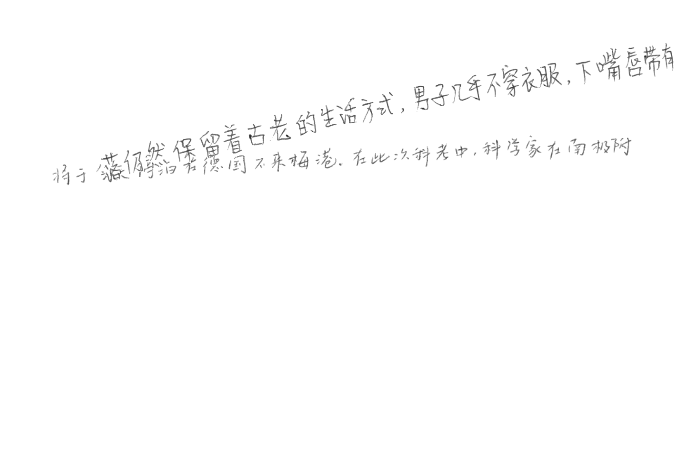 落仍然保留着古老的生活方式，男子几乎不穿衣服，下嘴唇带有
将于 停泊在德国不来梅港。在此次科考中，科学家在南极附